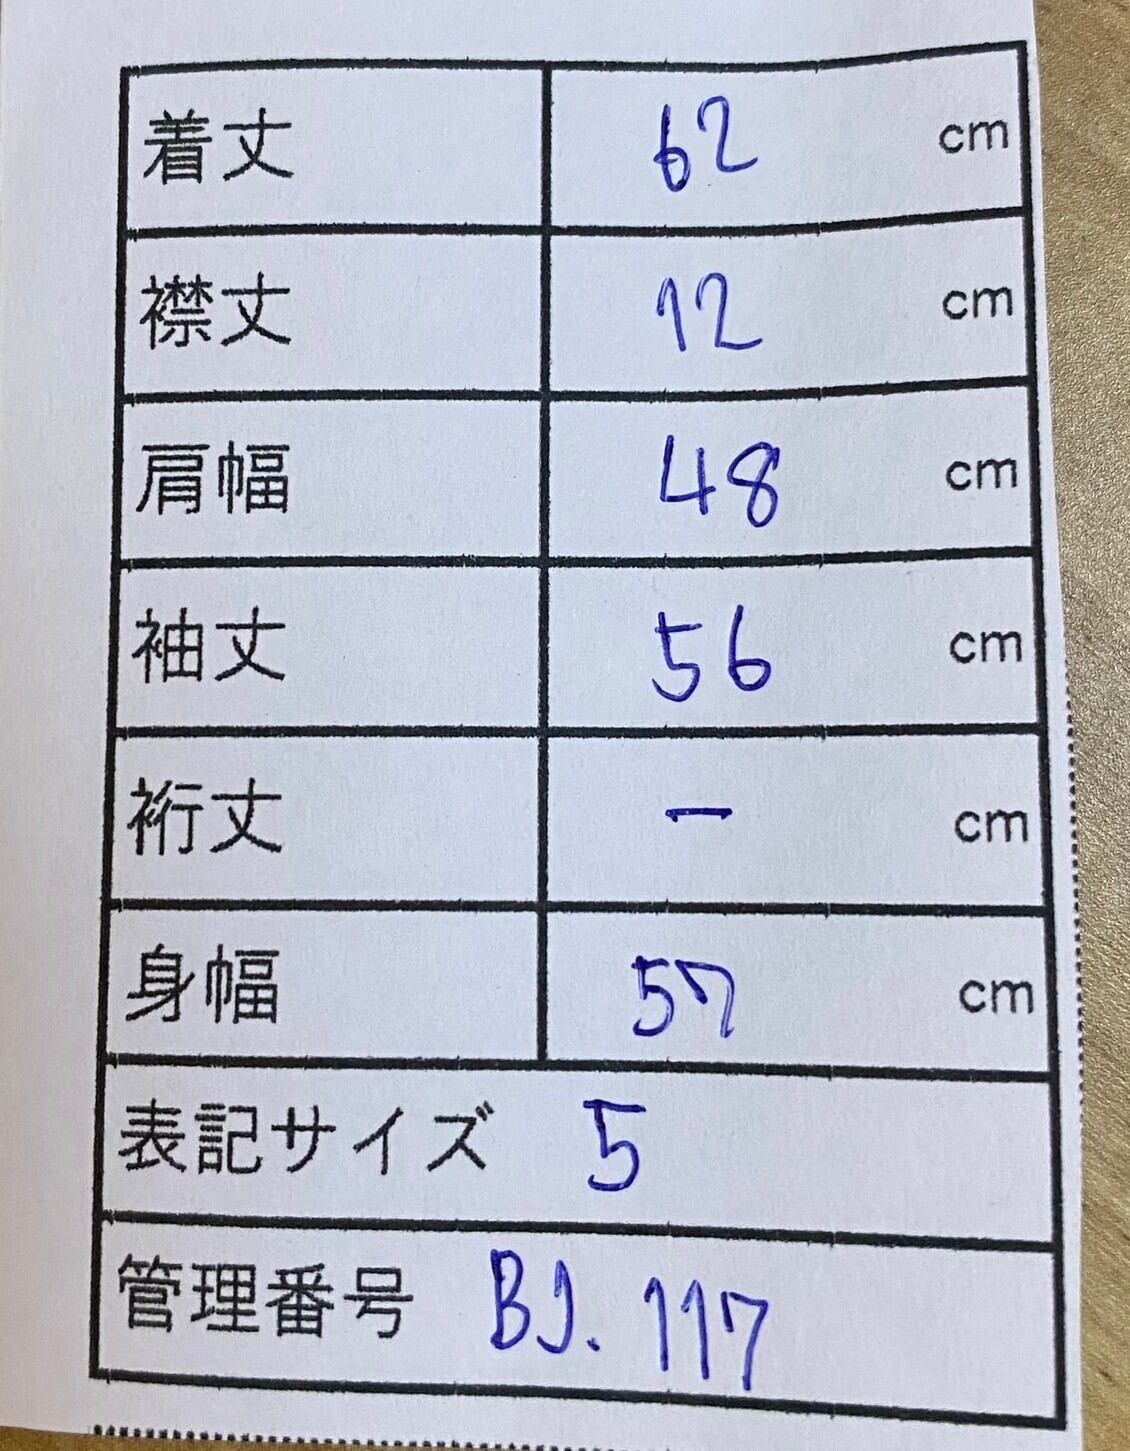 着丈 62 cm
襟丈 12 cm
肩幅 48 cm
袖丈 56 cm
裄丈 ー cm
身幅 57 cm
表記サイズ 5
管理番号 BJ. 117